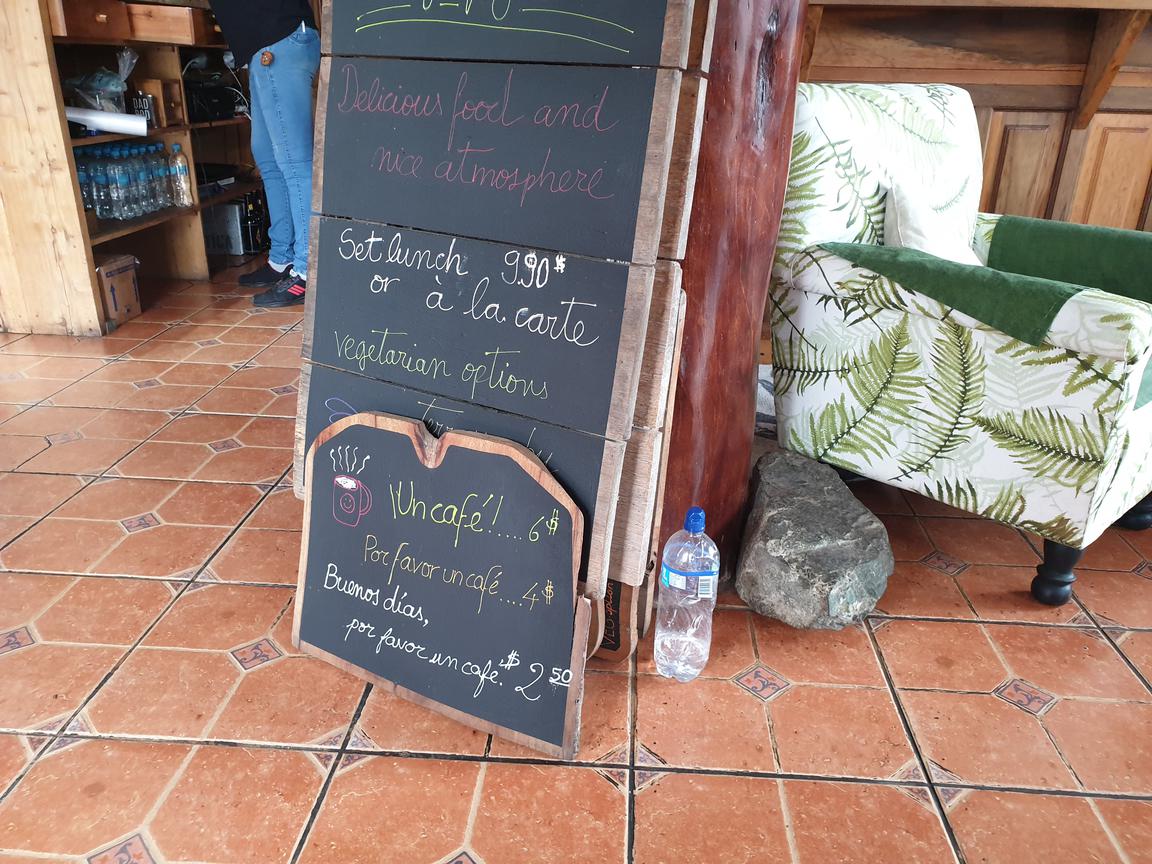 Delicious food and
nice atmosphere
Set lunch 9.90$
or à la carte
vegetarian options
¡Un café!.... 6$
Por favor un café....4$
Buenos días,
por favor un café. $ 2 50
DAD